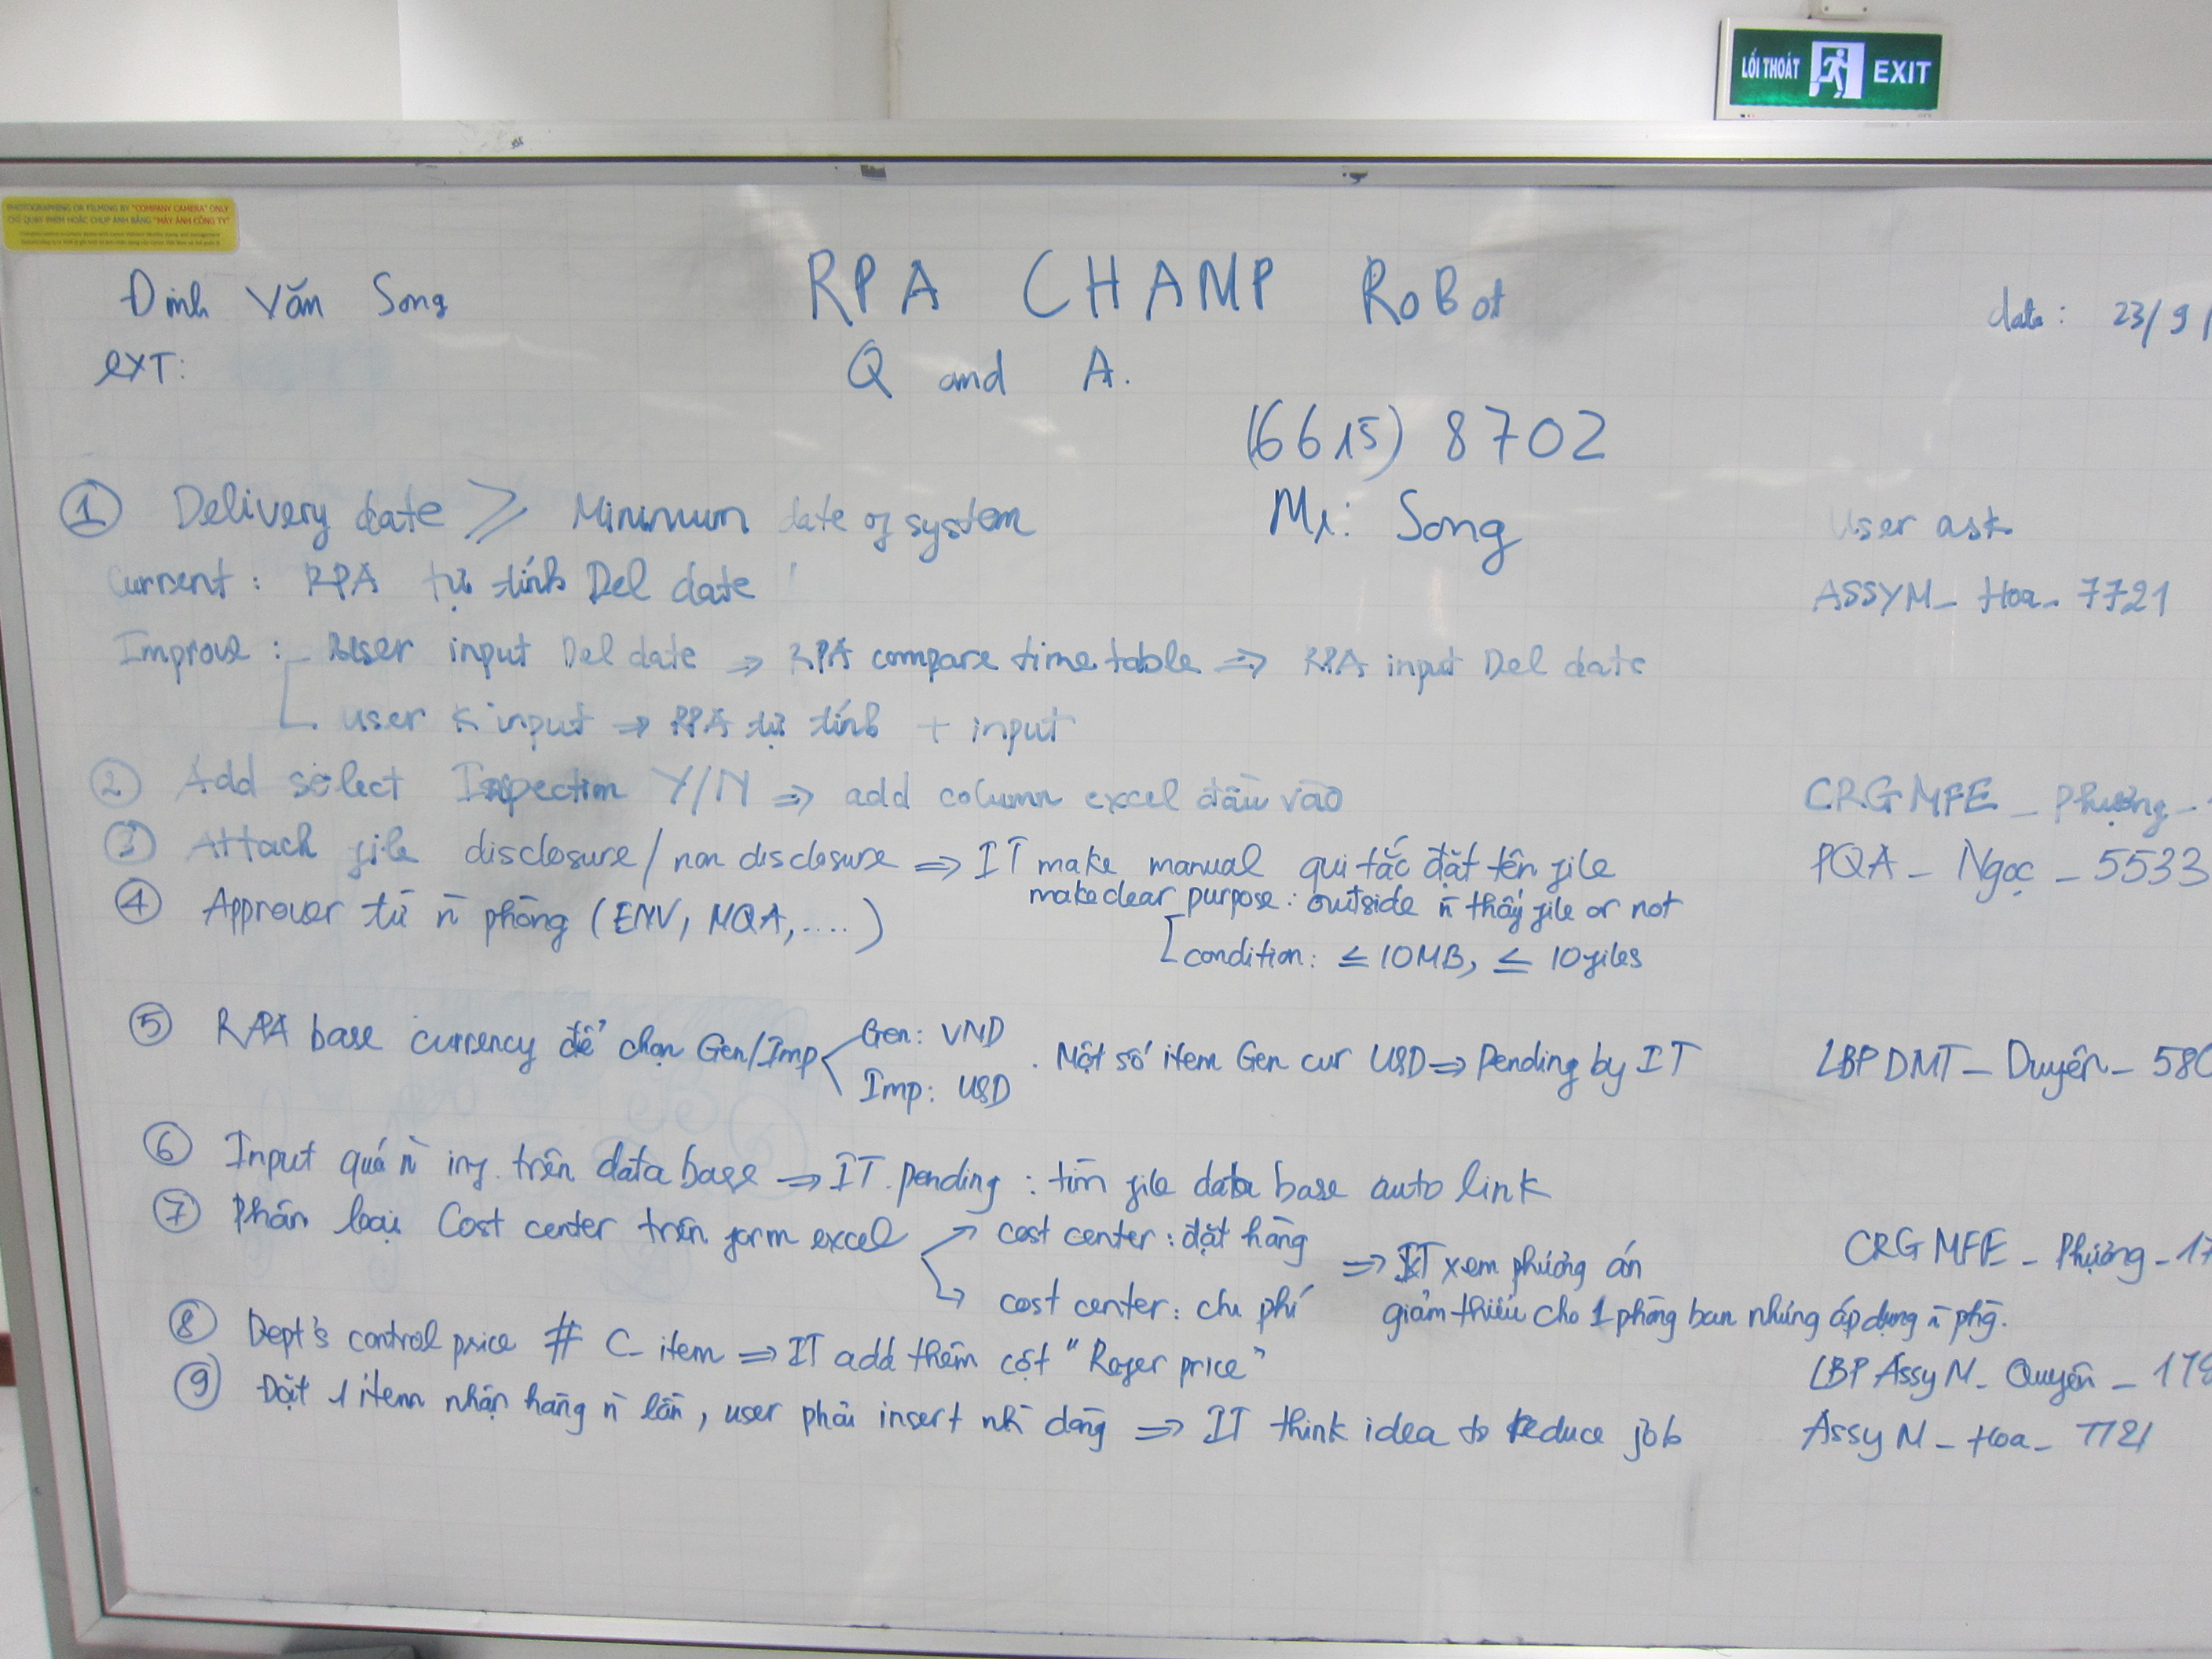 LỐI THOÁT EXIT
PHOTOGRAPHING OR FILMING BY "COMPANY CAMERA" ONLY
CHỈ QUAY PHIM HOẶC CHỤP ẢNH BẰNG "MÁY ẢNH CÔNG TY"
Đinh Văn Song
RPA CHAMP RoBot
date: 23/9/
ext:
Q and A.
(6615) 8702
Mr: Song
① Delivery date ≥ Minimum date of system
User ask
Current: RPA tự tính Del date
ASSYM_ Hoa_ 7721
Improve: User input Del date ⇒ RPA compare time table ⇒ RPA input Del date
user k input ⇒ RPA tự tính + input
② Add select Inspection Y/N ⇒ add column excel đầu vào
CRG MFE _ Phượng _
③ Attach file disclosure / non disclosure ⇒ IT make manual qui tắc đặt tên file
PQA _ Ngọc _ 5533
make clear purpose: outside n thấy file or not
④ Approver từ n phòng (ENV, MQA, ....)
condition: ≤ 10MB, ≤ 10 files
⑤ RPA base currency để chọn Gen/Imp
Gen: VND
Imp: USD
. Một số item Gen cur USD ⇒ Pending by IT
LBP DMT _ Duyên _ 580
⑥ Input quá n inf. trên data base ⇒ IT pending: tìm file data base auto link
⑦ Phân loại Cost center trên form excel
cost center: đặt hàng
cost center: chi phí
⇒ IT xem phương án
giảm thiểu cho 1 phòng ban nhưng áp dụng n phg.
CRG MFE _ Phượng _ 17
⑧ Dept's control price # C_item ⇒ IT add thêm cột "Refer price"
LBP Assy N_ Quyên _ 179
⑨ Đặt 1 item nhận hàng n lần, user phải insert nh dòng ⇒ IT think idea to reduce job
Assy N _ Hoa _ 7721